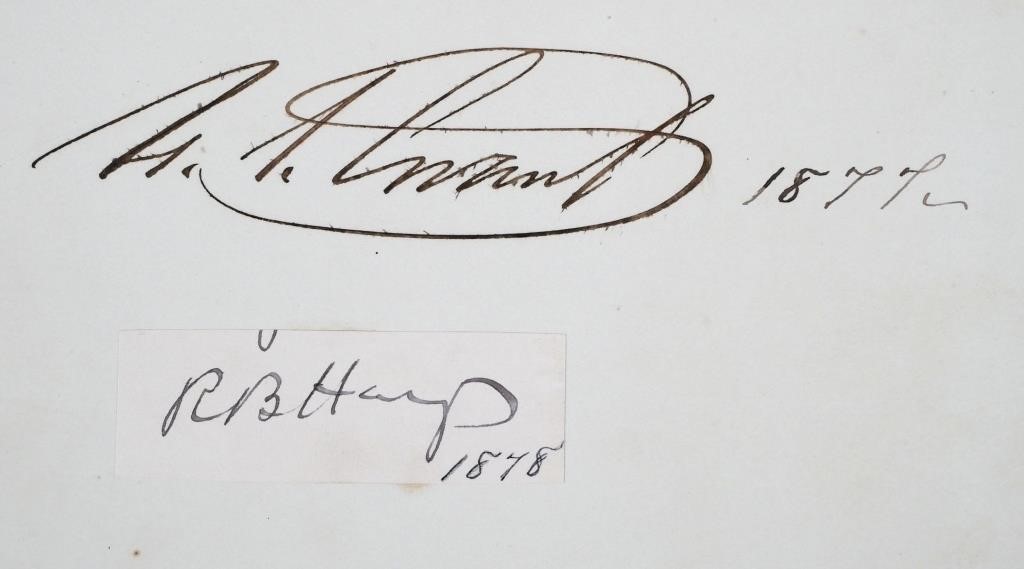 U. S. Grant 1877
R B Hayes
1878